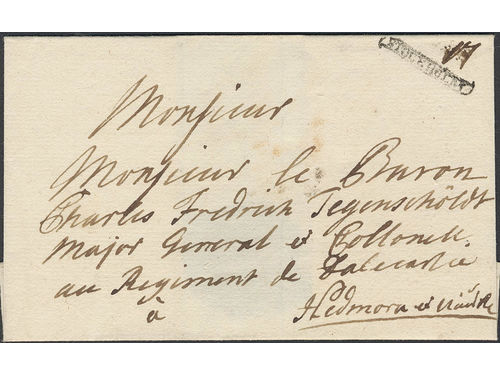 STOCKHOLM
Monsieur
Monsieur le Baron
Charles Fredrich Jegerschöldt
Major General et Collonell
au Regiment de Dalecarlie
à
Hedmora et